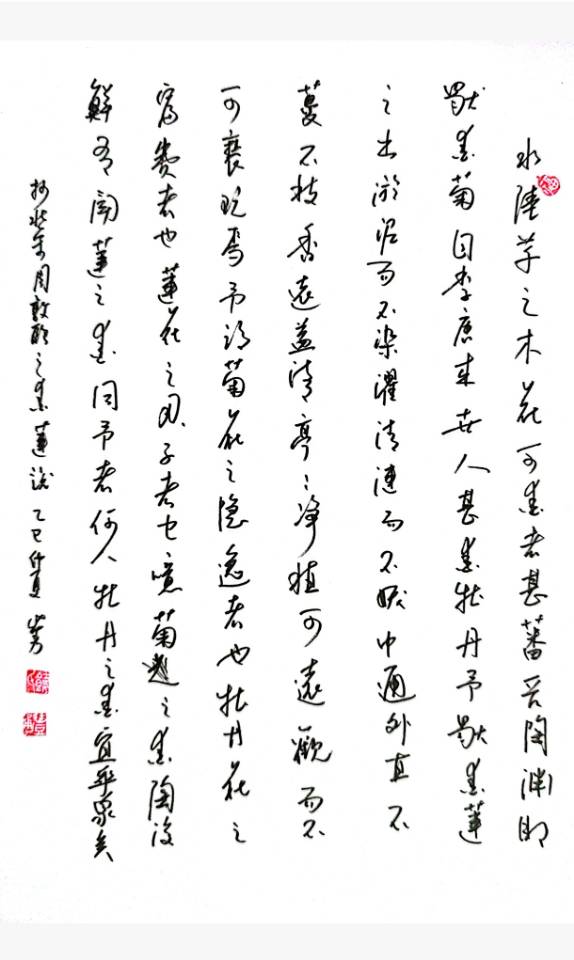 水陸草之木花可愛者甚蕃晋陶渊明
獨愛菊自李唐來世人甚愛牡丹予獨愛蓮
之出淤泥而不染濯清漣而不妖中通外直不
蔓不枝香遠益清亭〻淨植可遠觀而不
可褻玩焉予謂菊花之隱逸者也牡丹花之
富貴者也蓮花之君子者也噫菊之愛陶後
鮮有聞蓮之愛同予者何人牡丹之愛宜乎眾矣
抄北宋周敦颐之愛蓮説 乙巳仲夏